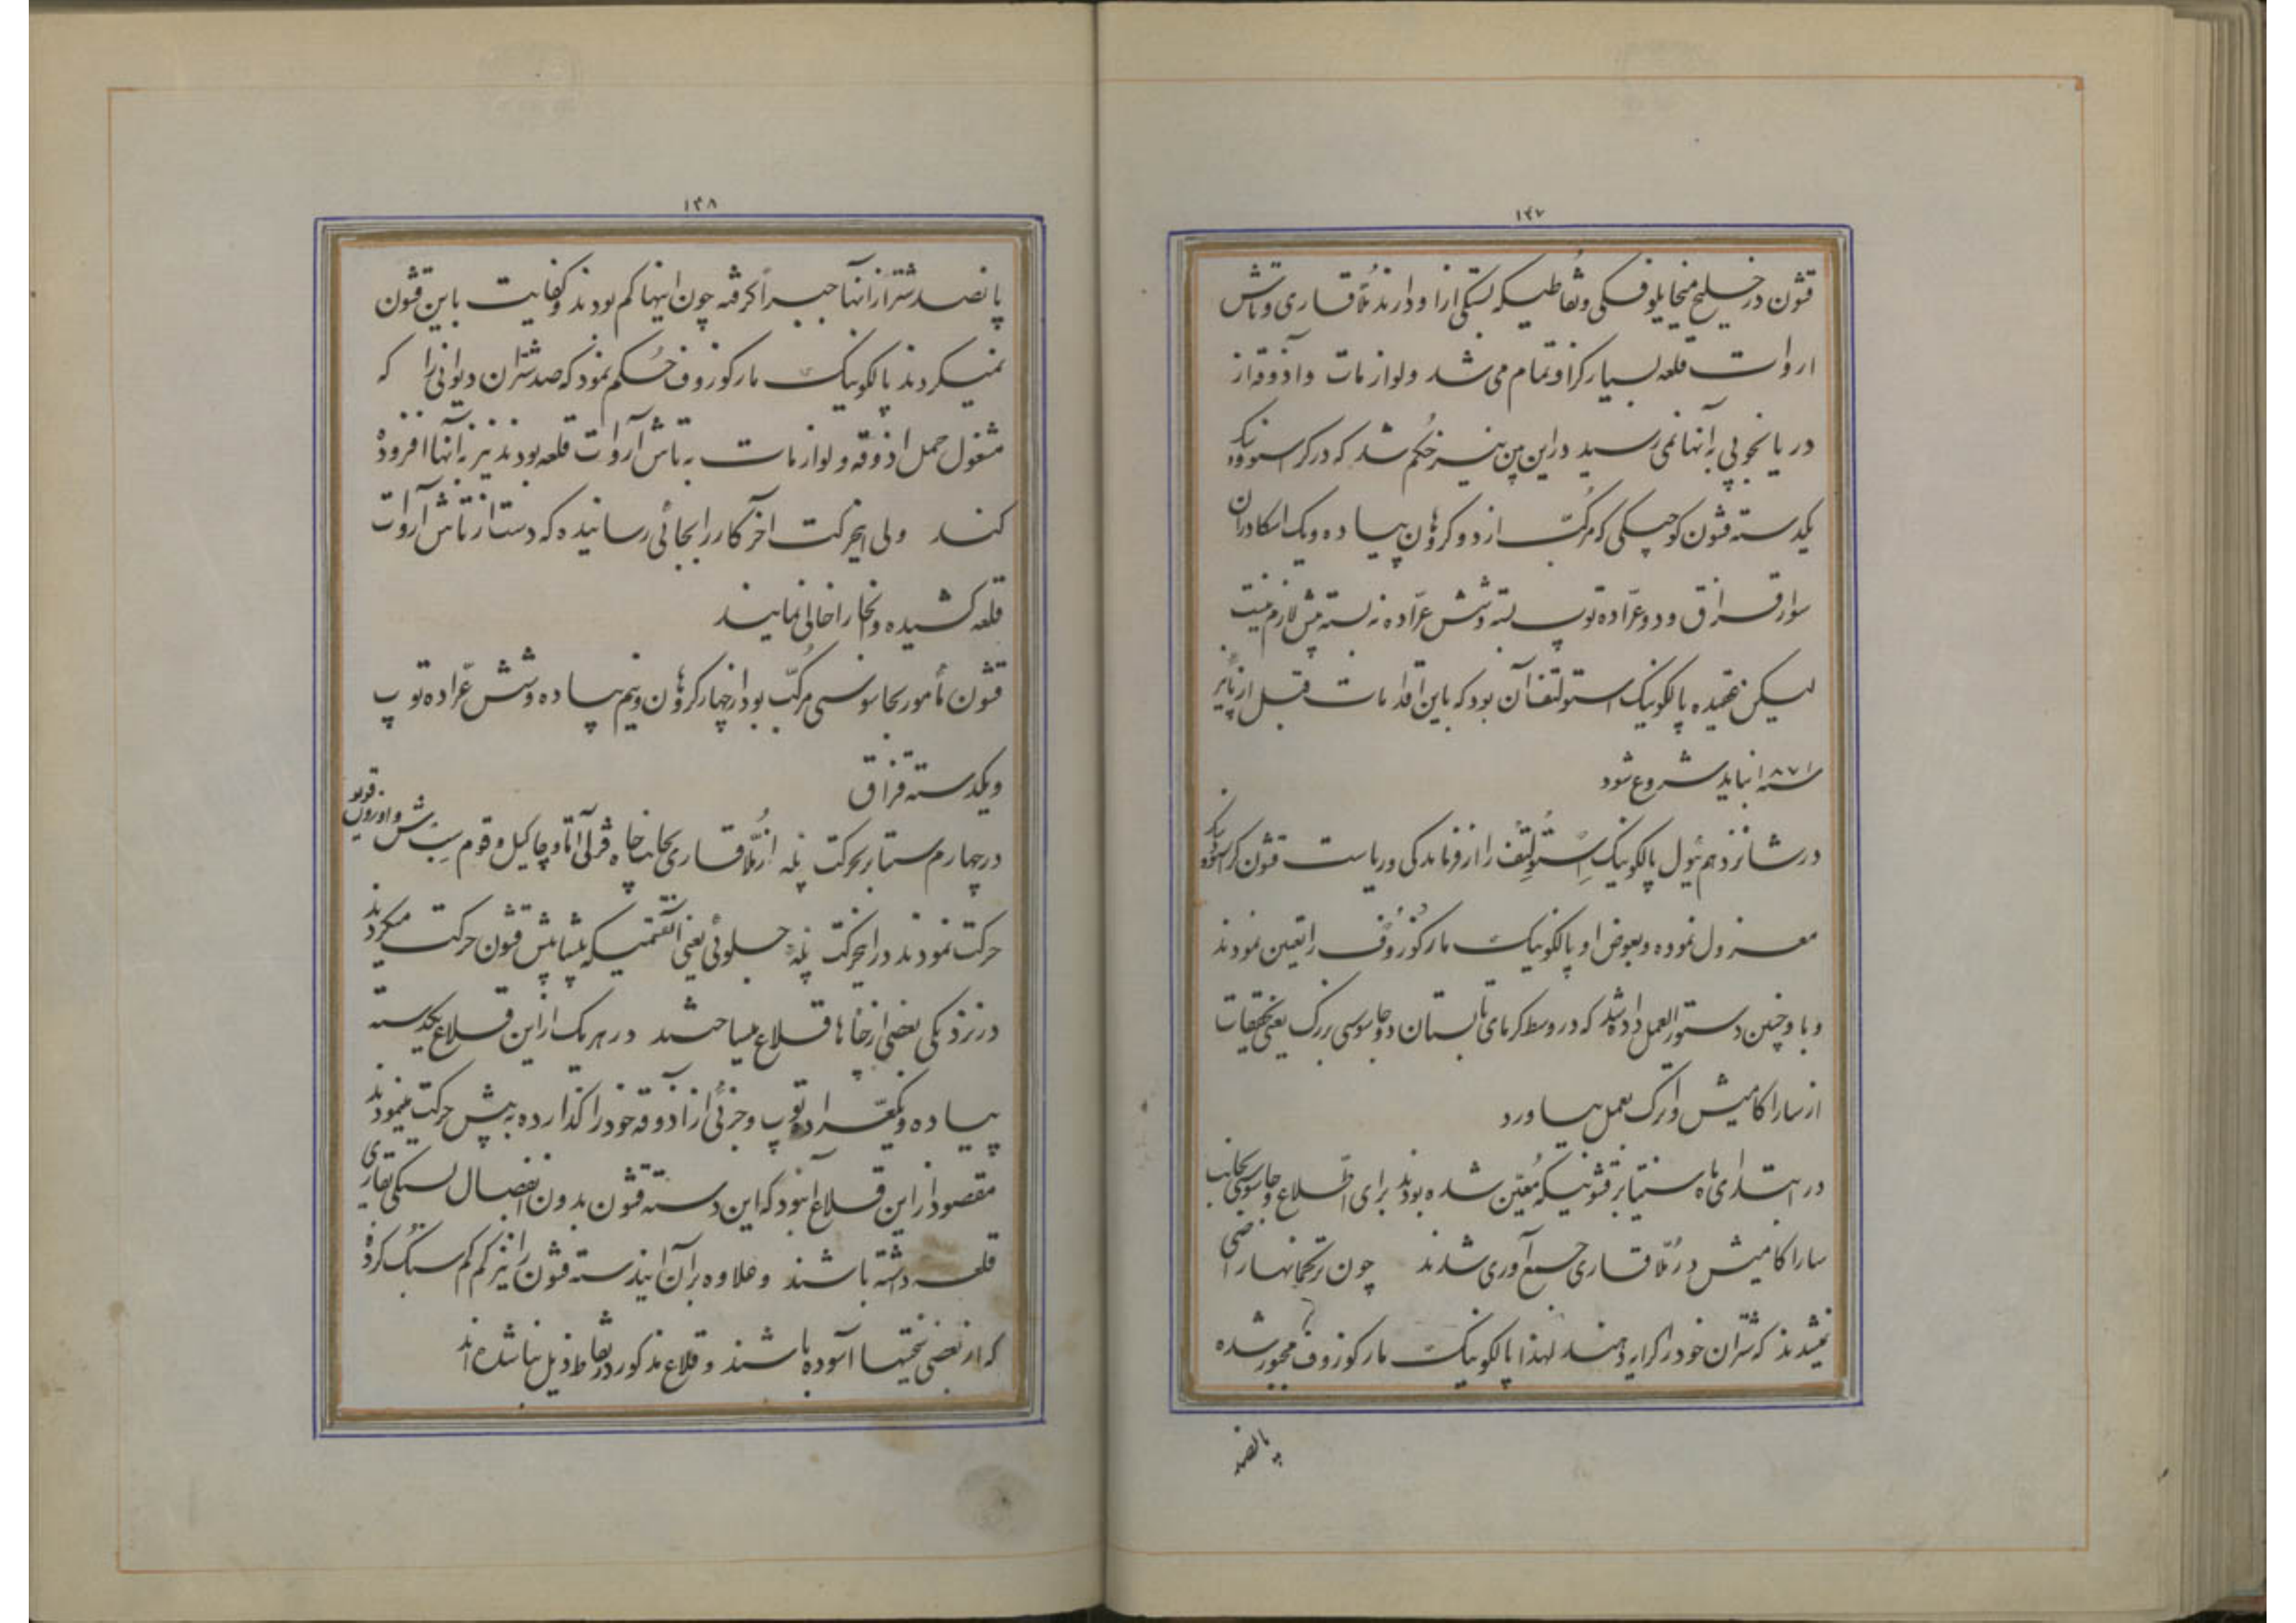 ۱۴۷
قشون در خلیج میخایلوفسکی و نقاطیکه بستگی از او دارند مُلّاقاری و تاش
اروات قلعه بسیار گران تمام می شد ولوازمات و آذوقه از
دریا بخوبی به آنها نمی رسید در این بین نیز حُکم شد که در کراسنوودسک
یکدسته قشون کوچکی که مرکّب از دو کروهان پیاده و یک اسکادران
سوار قزاق و دو عرّاده توپ بسته و شش عرّاده نه بسته بیش لازم نیست
لیکن عقیده پالکونیک استولتف آن بود که باین اقدامات قبل از پائیز
سنه ۱۸۷۱ نباید شروع شود
در شانزدهم ئیول پالکونیک اِستُولِتِف را از فرماندگی و ریاست قشون کراسنوودسک
معزول نموده و بعوض او پالکونیک مارکُوزُوف را تعین نمودند
و باو چنین دستورالعمل داده شد که در وسط گرمای تابستان دو جاسوسی بزرک یعنی تحقیقات
از ساراکامیش و اترک بعمل بیاورد
در ابتدای ماه سنتیابر قشونیکه مُعیّن شده بودند برای اطّلاع و جاسوسی بجانب
ساراکامیش در مُلّاقاری جمع آوری شدند چون ترکمانها راضی
نمیشدند که شتران خود را کرایه دهند لهذا پالکونیک مارکوزوف مجبور شده
پانصد
۱۴۸
پانصد شتر از آنها جبراً گرفته چون اینها کم بودند و کفایت باین قشون
نمیکردند پالکونیک مارکوزوف حُکم نمود که صد شتران دیوانی را که
مشغول حمل اذوقه و لوازمات به تاش آروات قلعه بودند نیز به آنها افزوده
کنند ولی اینحرکت آخر کار را بجائی رسانیده که دست از تاش آروات
قلعه کشیده و آنجا را خالی نمایند
قشون مأمور بجاسوسی مُرکّب بود از چهار کروهان و نیم پیاده و شش عرّاده توپ
و یکدسته قزاق
در چهارم سنتابر بحرکت پله از مُلّاقاری بجانب چاه قزل آتا و چاکیل و قوم سبشن و اوزون قویو
حرکت نمودند در اینحرکت پله جلوئی یعنی آنقسمتیکه پیشاپیش قشون حرکت میکردند
در نزدیکی بعضی از چاها قلاع میساختند در هر یک از این قلاع یکدسته
پیاده و یکعرّاده توپ و جزئی از آذوقه خود را گذارده به پیش حرکت مینمودند
مقصود از این قلاع آنبود که این دسته قشون بدون انفصال بستگی بقاری
قلعه داشته باشند و علاوه بر آن ایندسته قشون را نیز کم کم سبک کرده
که از بعضی سختیها آسوده باشند و قلاع مذکور در نقاط ذیل بنا شده اند